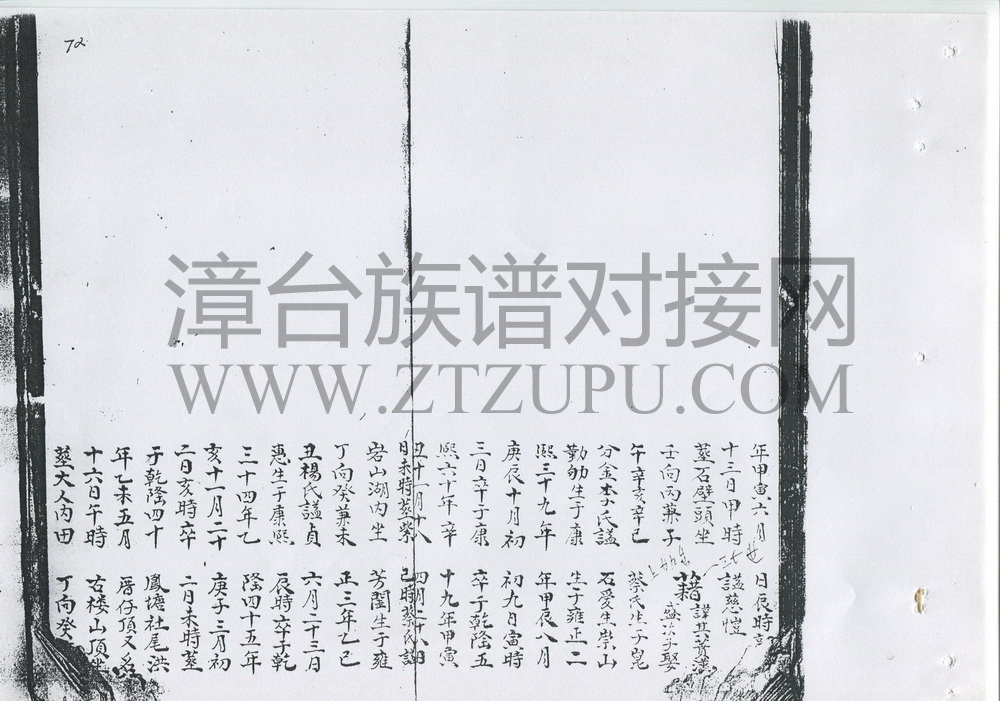 72
年甲寅六月
十三日甲時
塟石壁頭坐
壬向丙兼子
午辛亥辛巳
分金李氏謚
勤劬生于康
熙三十九年
庚辰十月初
三日卒于康
熙六十年辛
丑十一月十八
日未時塟紫
岩山湖內坐
丁向癸兼未
丑楊氏謚貞
惠生于康熙
三十四年乙
亥十一月二十
二日亥時卒
于乾隆四十
年乙未五月
十六日午時
塟大人內田
日辰時
謚慈愷
藉 諱其
盛公子娶
蔡氏生子崑
石爱生崇山
生于雍正二
年甲辰八月
初九日寅時
卒于乾隆五
十九年甲寅
四月二十八日
巳時蔡氏謚
芳閨生于雍
正三年乙巳
六月二十三日
辰時卒于乾
隆四十五年
庚子三月初
二日未時塟
鳳塘社尾洪
厝仔頂又名
古楼山頂坐
丁向癸
漳台族谱对接网
WWW.ZTZUPU.COM